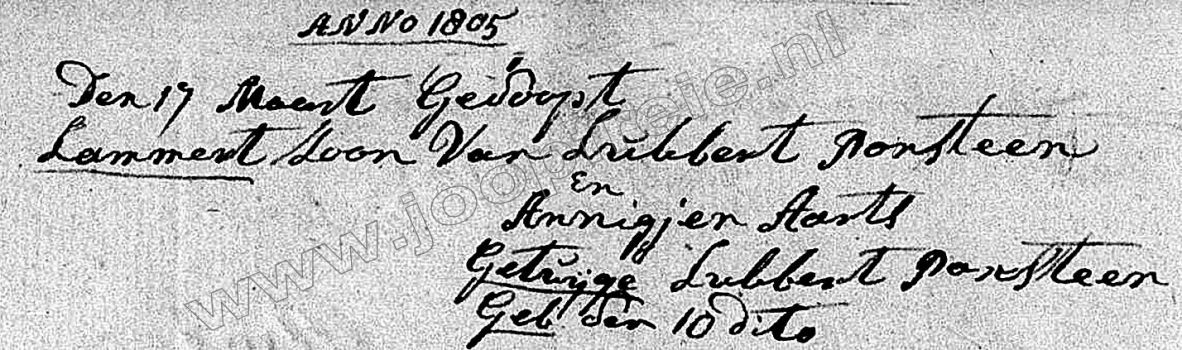 ANNO 1805
Den 17 Maart Gedoopt
Lammert Soon Van Lubbert Ponsteen
En
Annigjen Aarts
Getuijge Lubbert Ponsteen
Geb den 10 dito